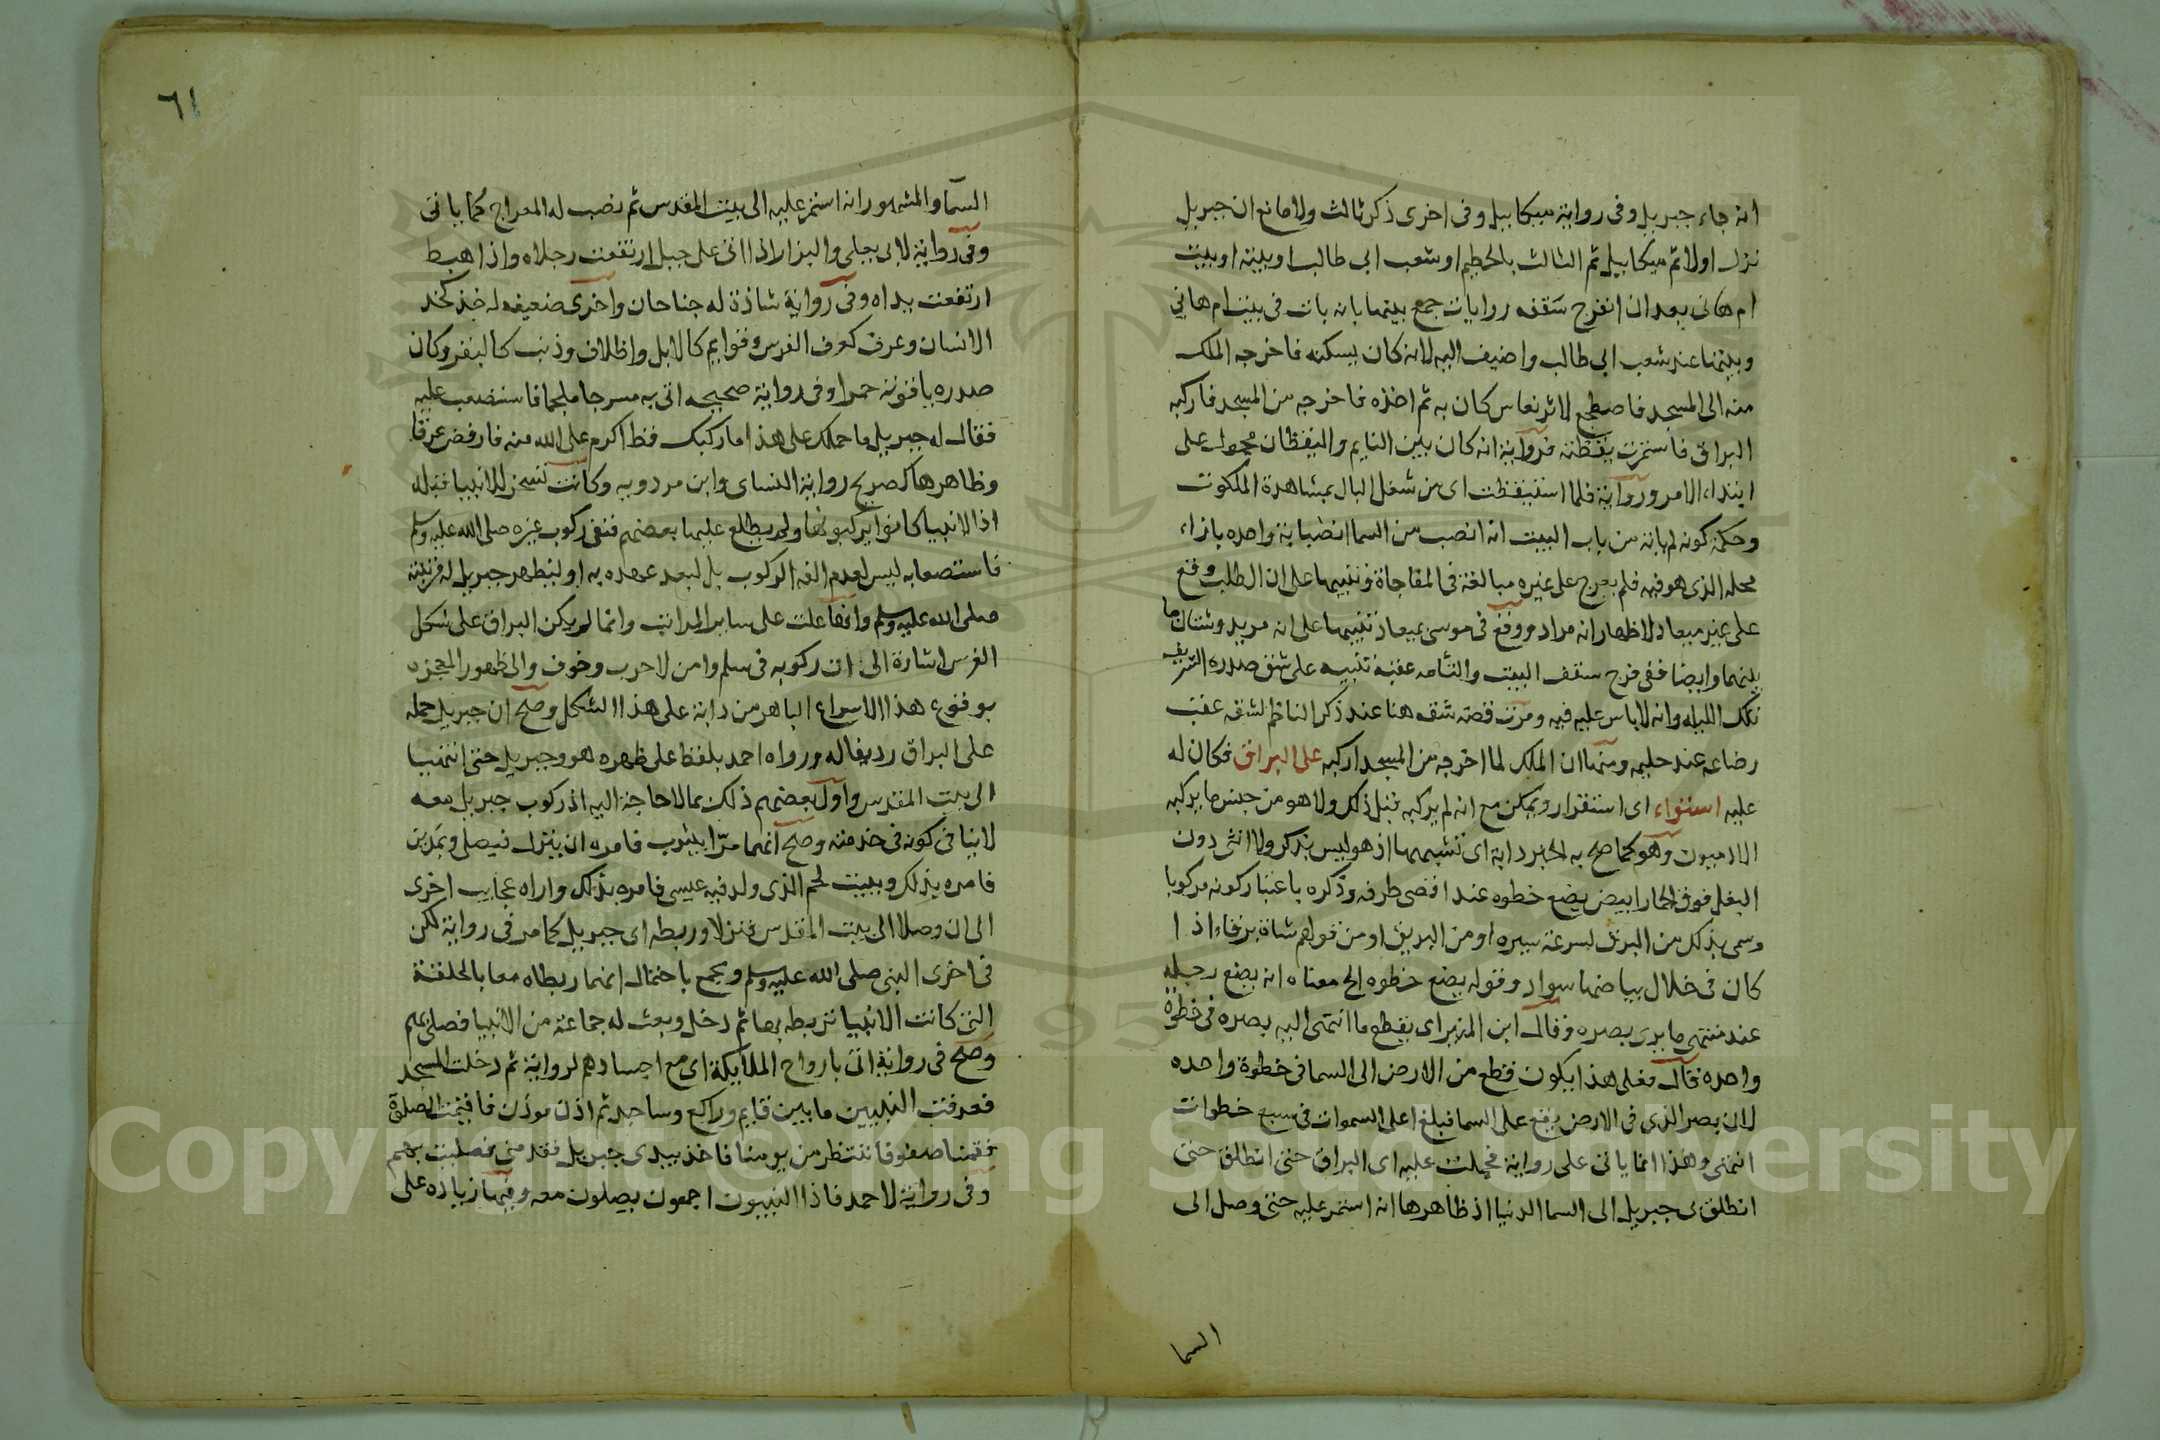 انه جاء جبريل وفي رواية ميكاييل وفي اخرى ذكر ثالث ولا مانع ان جبريل
نزل اولا ثم ميكاييل ثم الثالث بالحطيم او شعب ابي طالب او بيته او بيت
ام هاني بعد ان انفرج سقفه روايات جمع بينها بانه بات في بيت ام هاني
وبيتها عند شعب ابي طالب واضيف اليه لانه كان يسكنه فاخرجه الملك
منه الى المسجد فاضطجع لاثر نعاس كان به ثم اخذه فاخرجه من المسجد فاركبه
البراق فاستمرت يقظته فرواية انه كان بين النايم واليقظان محمول على
ابتداء الامر ورواية فلما استيقظت اي من شغل البال بمشاهدة الملكوت
وحكمة كونه لم ياته من باب البيت انه انصب من السما انصبابة واحده بازاء
محله الذي هو فيه فلم يعرج على غيره مبالغة في المفاجاة وتنبيها على ان الطلب وقع
على غير ميعاد لاظهار انه مراد ووقع في موسى بميعاد تنبيها على انه مريد وشتان ما
بينهما وايضا ففي فرج سقف البيت والتامه عقبه تنبيه على شق صدره الشريف
تلك الليله وانه لا باس عليه فيه ومرت قصة شقه هنا عند ذكر الناظم لشقه عقب
رضاعه عند حليمه ومنها ان الملك لما اخرجه من المسجد اركبه على البراق فكان له
عليه استواء اي استقرار وتمكن مع انه لم يركبه قبل ذلك ولا هو من جنس ما يركبه
الادميون وهو كما صح به الخبر دابة اي تشبيها اذ هو ليس بذكر ولا انثى دون
البغل فوق الحمار ابيض يضع خطوه عند اقصى طرفه وذكره باعتبار كونه مركوبا
وسمي بذلك من البرق لسرعة سيره او من البريق او من قولهم شاة برقاء اذا
كان في خلال بياضها سواد وقوله يضع خطوه الخ معناه انه يضع رجليه
عند منتهى ما يرى بصره وقال ابن المنير اي يقطع ما انتهى اليه بصره في خطوة
واحده قال فعلى هذا يكون قطع من الارض الى السما في خطوة واحده
لان بصر الذي في الارض يقع على السما فبلغ اعلى السموات في سبع خطوات
انتهى وهذا انما ياتي على رواية فحملت عليه اي البراق حتى انطلق حتى
انطلق بي جبريل الى السما الدنيا اذ ظاهرها انه استمر عليه حتى وصل الى
السما
٦١
السمآ والمشهور انه استمر عليه الى بيت المقدس ثم نصب له المعراج كما ياتي
وفي رواية لابي يعلى والبزار اذا اتى على جبل ارتفعت رجلاه واذا هبط
ارتفعت يداه وفي رواية شاذة له جناحان واخرى ضعيفه له خد كخد
الانسان وعرف كعرف الفرس وقوايم كالابل واظلاف وذنب كالبقر وكان
صدره ياقوتة حمرا وفي رواية صحيحه اتي به مسرجا ملجما فاستصعب عليه
فقال له جبريل ما حملك على هذا ما ركبك قط اكرم على الله منه فارفض عرقا
وظاهرها كصريح رواية النساي وابن مردويه وكانت تسخر للانبيا قبله
اذ الانبيا كانوا يركبونها ولم يطلع عليها بعضهم فنفى ركوب غيره صلى الله عليه وسلم
فاستصعابه ليس لعدم الفه الركوب بل لبعد عهده به او ليظهر جبريل له مزيته
صلى الله عليه وسلم وانها علت على ساير المراتب وانما لم يكن البراق على شكل
الفرس اشارة الى ان ركوبه في سلم وامن لا حرب وخوف والى ظهور المعجزه
بوقوع هذا الاسراع الباهر من دابة على هذا الشكل وصح ان جبريل حمله
على البراق رديفا له ورواه احمد بلفظ على ظهره هو وجبريل حتى انتهيا
الى بيت المقدس واول بعضهم ذلك بما لا حاجة اليه اذ ركوب جبريل معه
لا ينافي كونه في خدمته وصح انهما مرّا بيثرب فامره ان ينزل فيصلي وبمدين
فامره بذلك وببيت لحم الذي ولد فيه عيسى فامره بذلك واراه عجايب اخرى
الى ان وصلا الى بيت المقدس فنزلا وربطه اي جبريل كما مر في رواية لكن
في اخرى النبي صلى الله عليه وسلم ويجمع باحتمال انهما ربطاه معا بالحلقة
التي كانت الانبيا تربطه بها ثم دخل وبعث له جماعة من الانبيا فصلى بهم
وصح في رواية اتى بارواح الملايكة اي مع اجسادهم لرواية ثم دخلت المسجد
فعرفت النبيين ما بين قايم وراكع وساجد ثم اذن موذن فاقيمت الصلوة
فقمنا صفوفا ننتظر من يومنا فاخذ بيدي جبريل فقدمني فصليت بهم
وفي رواية لاحمد فاذا النبيون اجمعون يصلون معه وفيها زياده على
Copyright © King Saud University